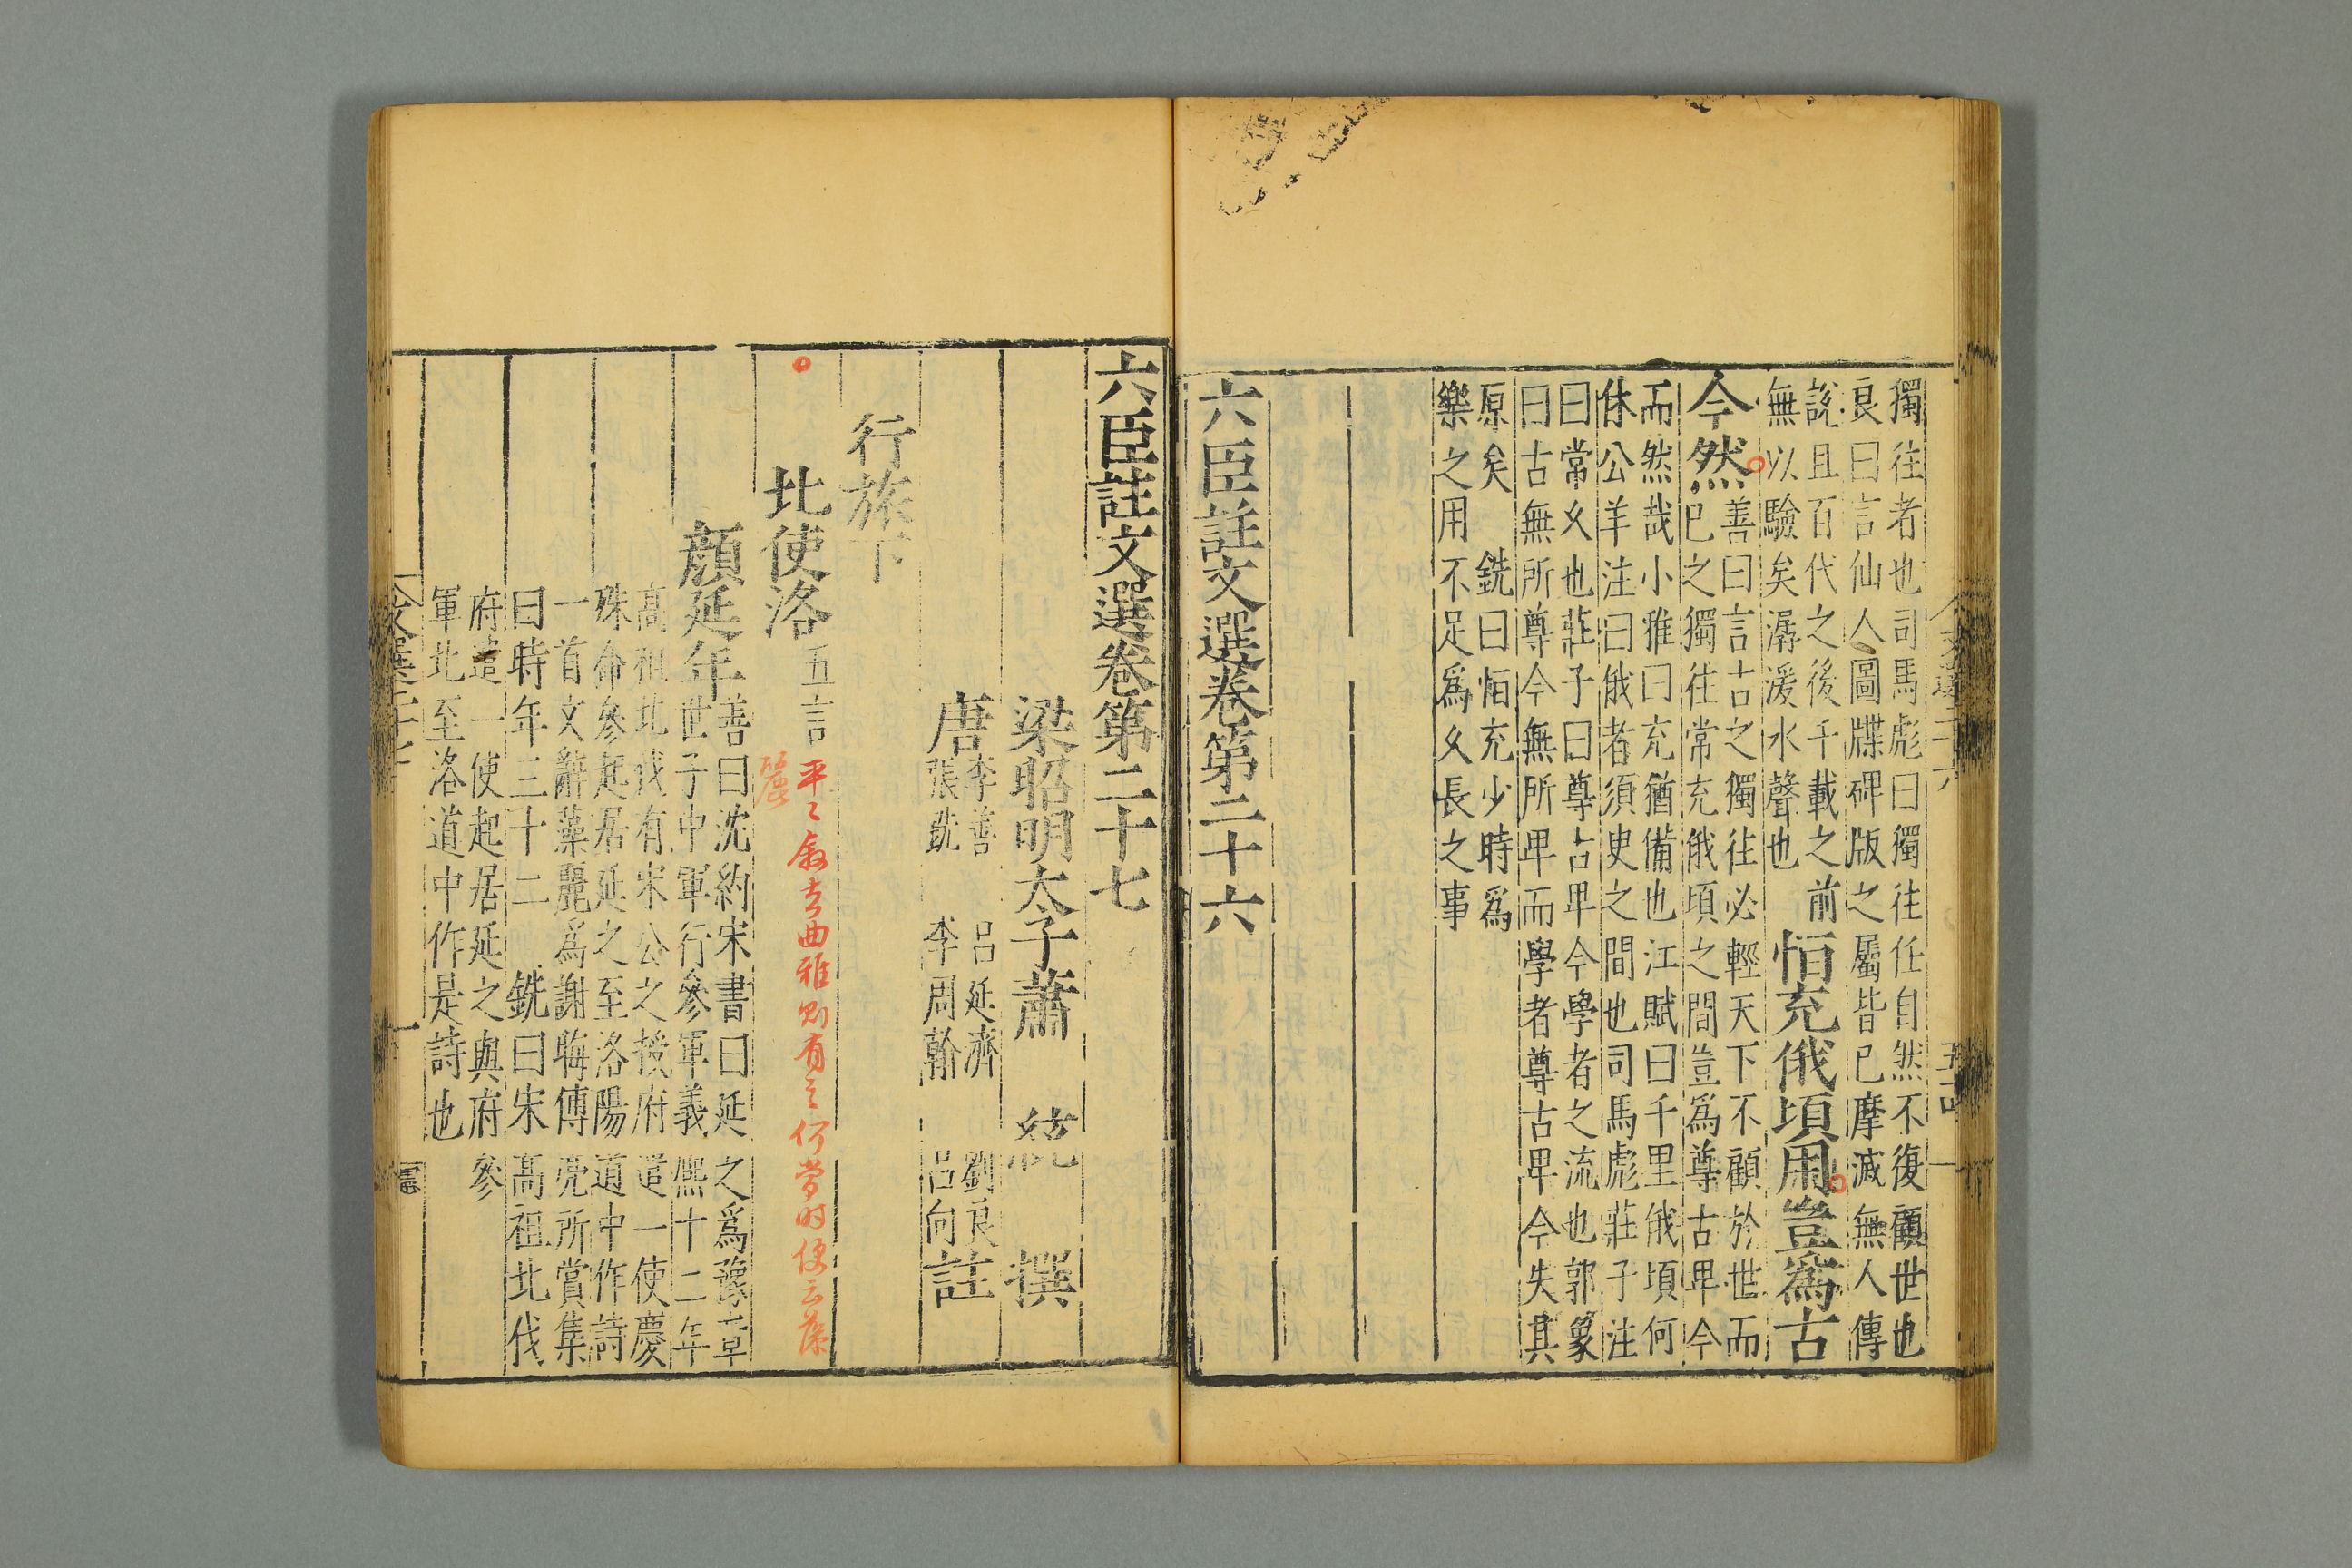 獨往者也司馬彪曰獨往任自然不復顧世也
良曰言仙人圖牒碑版之屬皆已摩滅無人傳
說且百代之後千載之前
無以驗矣潺湲水聲也
恒充俄頃用豈為古
今然
善曰言古之獨往必輕天下不顧於世而
已之獨往常充俄頃之間豈為尊古卑今
而然哉小雅曰充猶備也江賦曰千里俄頃何
休公羊注曰俄者須臾之間也司馬彪莊子注
曰常久也莊子曰尊古卑今學者之流也郭象
曰古無所尊今無所卑而學者尊古卑今失其
原矣 銑曰恒充少時為
樂之用不足為久長之事
六臣註文選卷第二十六
六臣註文選卷第二十七
梁昭明太子蕭 統 撰
唐
李善 呂延濟 劉良
張銑 李周翰 呂向
註
行旅下
北使洛五言
平々敘去曲雅則有之何當時便云藻
麗
顏延年
善曰沈約宋書曰延之為豫章
世子中軍行參軍義熙十二年
高祖北伐有宋公之授府遣一使慶
殊命參起居延之至洛陽道中作詩
一首文辭藻麗為謝晦傅亮所賞集
曰時年三十二 銑曰宋高祖北伐
府遣一使起居延之與府參
軍北至洛道中作是詩也
文選二十七
一